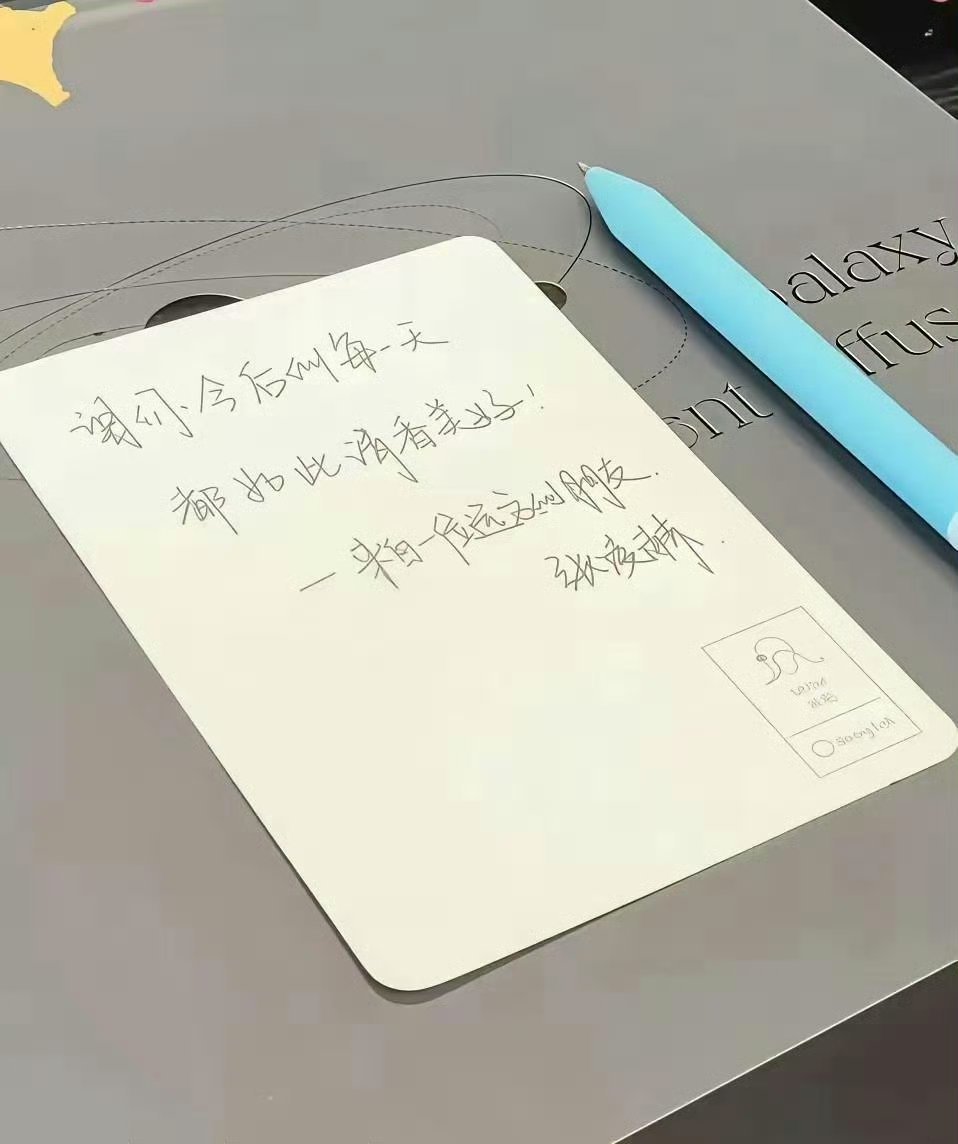 我们·今后的每一天
都如此清香美好!
一来自一位远方的朋友.
张凌赫.
alaxy
ffus
ont